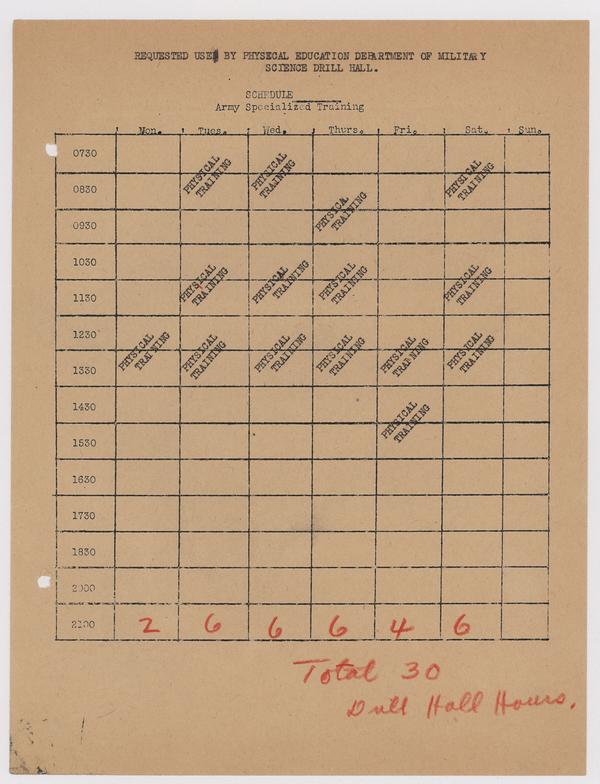 REQUESTED USE BY PHYSECAL EDUCATION DEPARTMENT OF MILITARY
SCIENCE DRILL HALL.
SCHEDULE
Army Specialized Training
Mon. Tues. Wed. Thurs. Fri. Sat. Sun.
0730
PHYSICAL TRAINING PHYSICAL TRAINING PHYSICAL TRAINING
0830
PHYSICAL TRAINING
0930
1030
PHYSICAL TRAINING PHYSICAL TRAINING PHYSICAL TRAINING PHYSICAL TRAINING
1130
1230
PHYSICAL TRAINING PHYSICAL TRAINING PHYSICAL TRAINING PHYSICAL TRAINING PHYSICAL TRAINING PHYSICAL TRAINING
1330
1430
PHYSICAL TRAINING
1530
1630
1730
1830
2000
2100 2 6 6 6 4 6
Total 30
Drill Hall Hours.